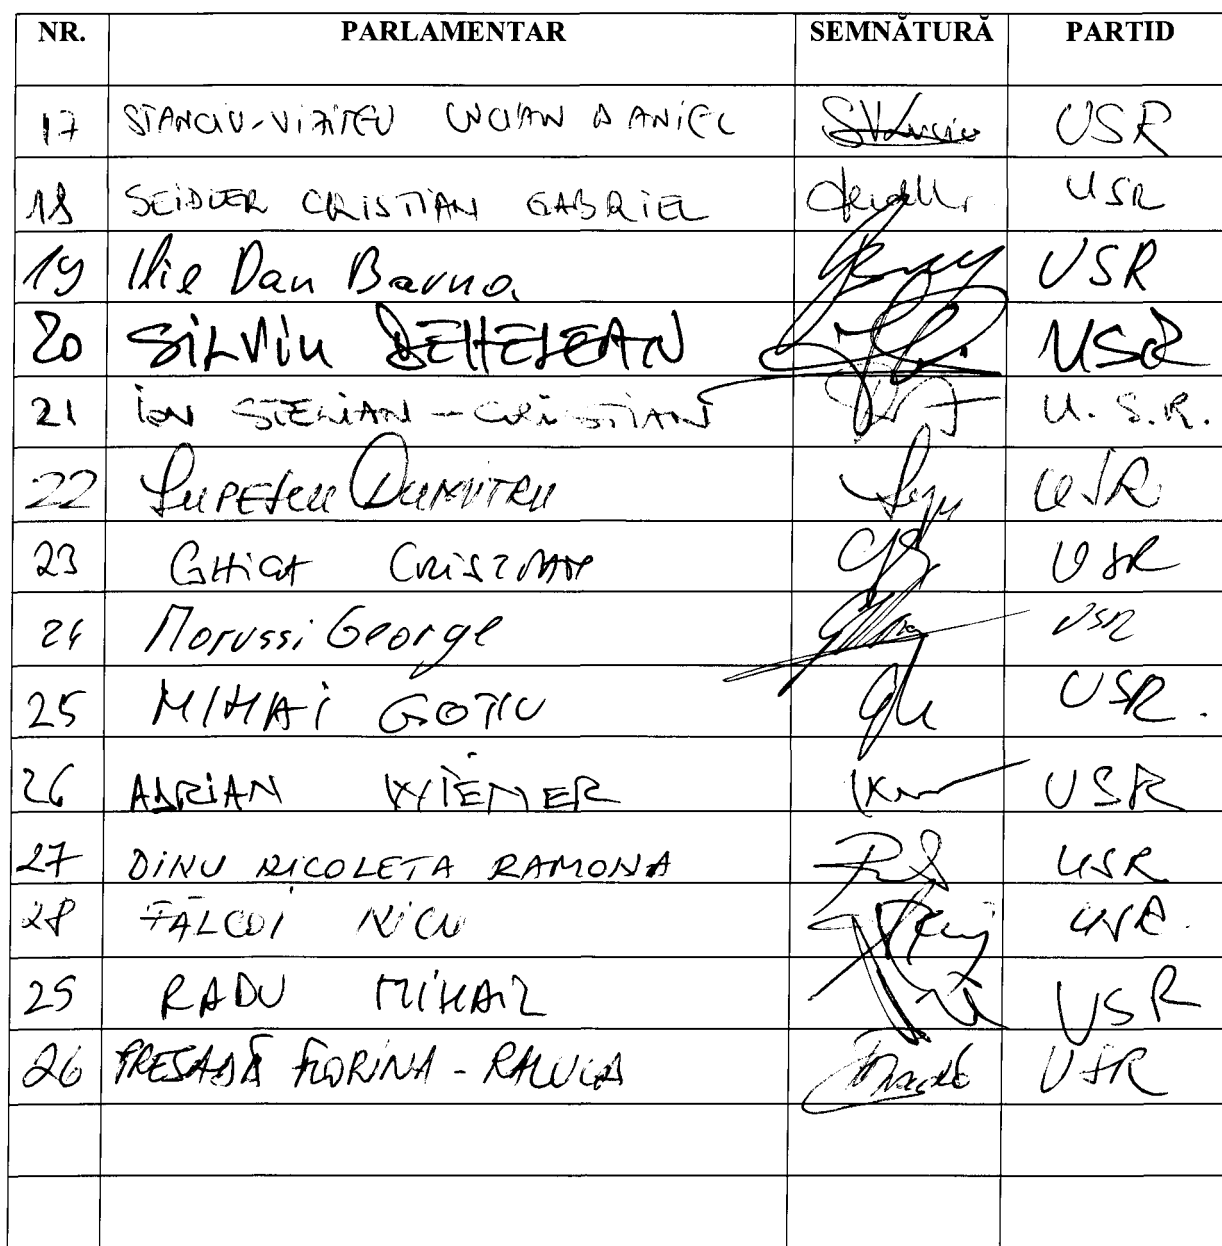 NR. PARLAMENTAR SEMNĂTURĂ PARTID
17 STANCIU-VIZITEU LUCIAN DANIEL USR
18 SEIDLER CRISTIAN GABRIEL USR
19 Ilie Dan Barna USR
20 SiLViu DEHELEAN USR
21 ION STELIAN-CRISTIAN U.S.R.
22 LUPESCU DUMITRU USR
23 GHICA CRISTIAN USR
24 Marussi George USR
25 MIHAI GOTIU USR.
26 ADRIAN WIENER USR
27 DINU NICOLETA RAMONA USR
28 FĂLCOI NICU USR.
25 RADU MIHAIL USR
26 PRESADĂ FLORINA-RALUCA USR